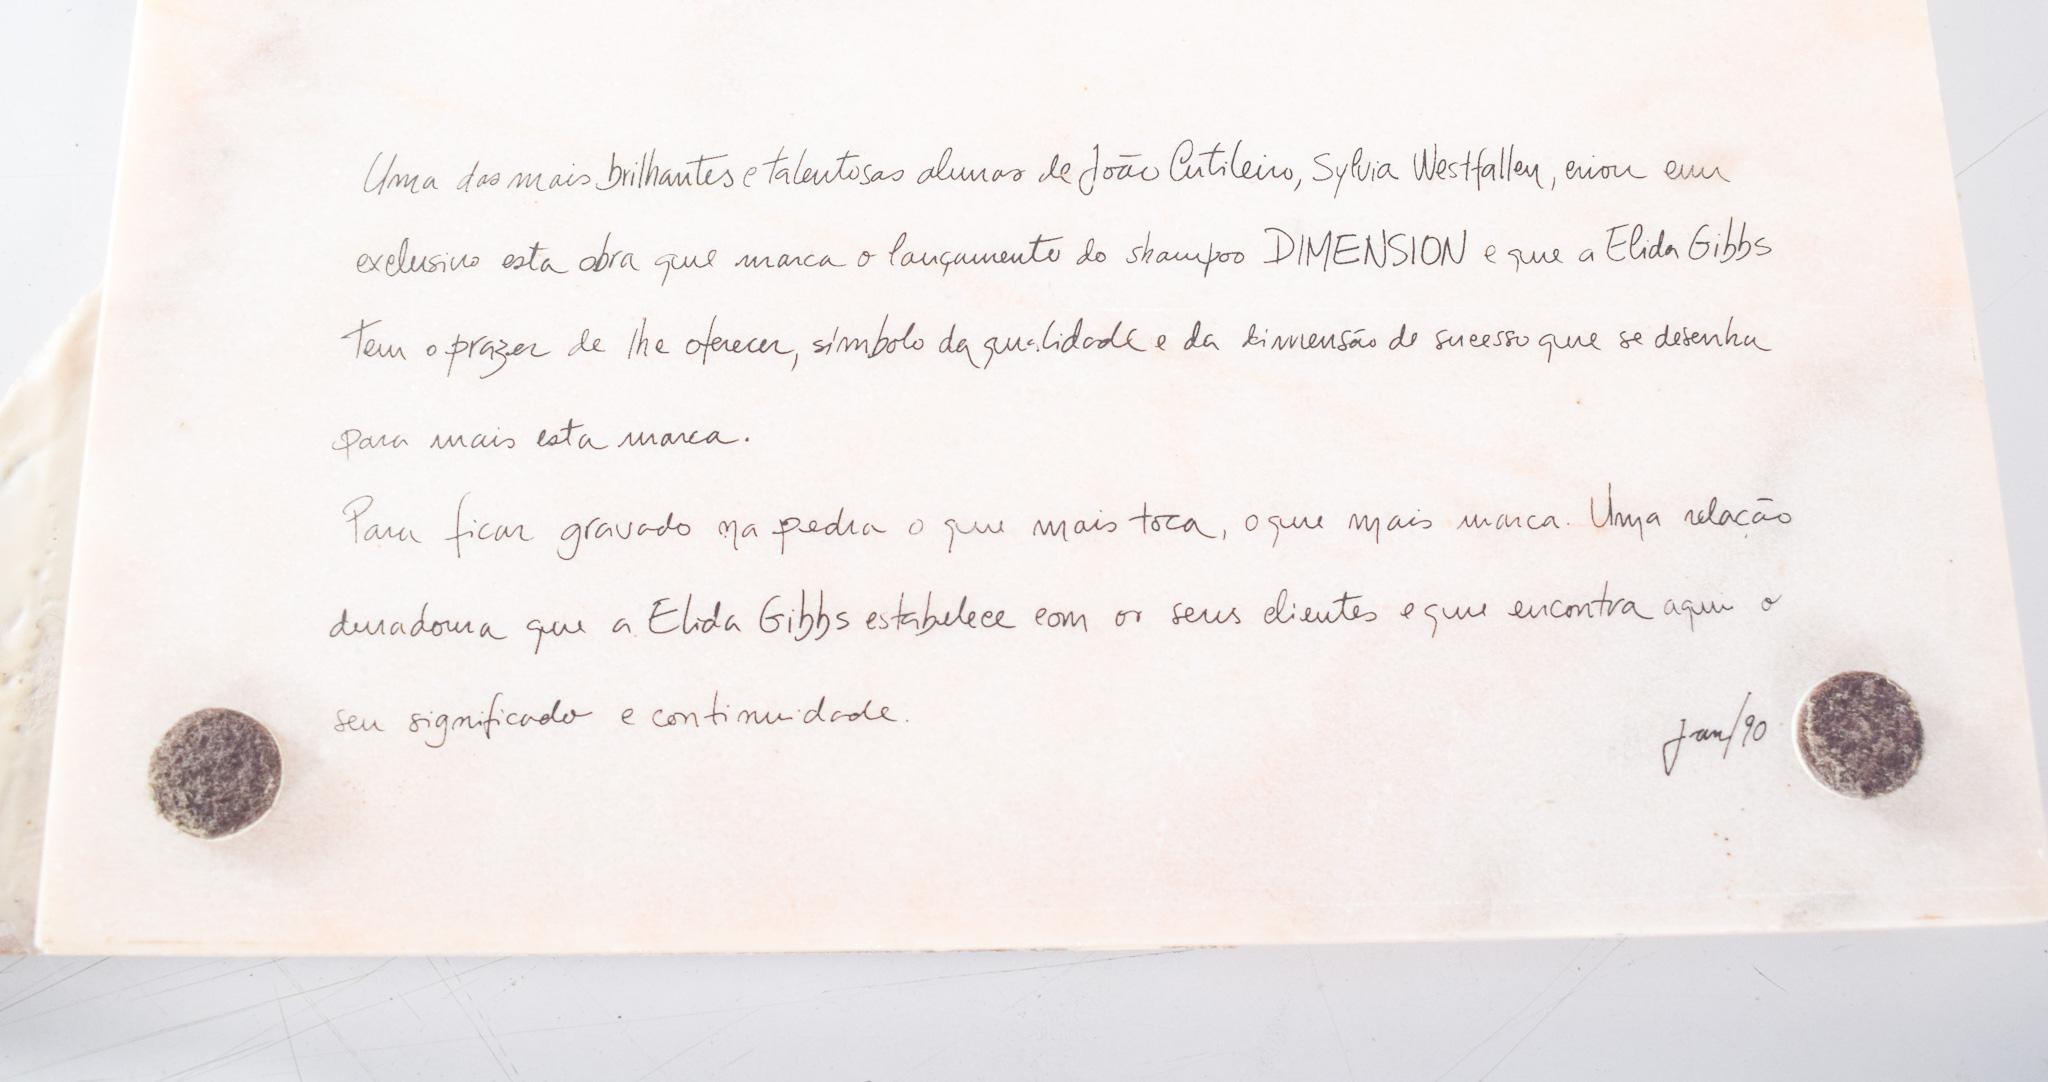 Uma das mais brilhantes e talentosas alunas de João Cutileiro, Sylvia Westfallen, criou em
exclusivo esta obra que marca o lançamento do shampoo DIMENSION e que a Elida Gibbs
tem o prazer de lhe oferecer, símbolo da qualidade e da dimensão de sucesso que se desenha
para mais esta marca.
Para ficar gravado na pedra o que mais toca, o que mais marca. Uma relação
duradoura que a Elida Gibbs estabelece com os seus clientes e que encontra aqui o
seu significado e continuidade.
Jan/90